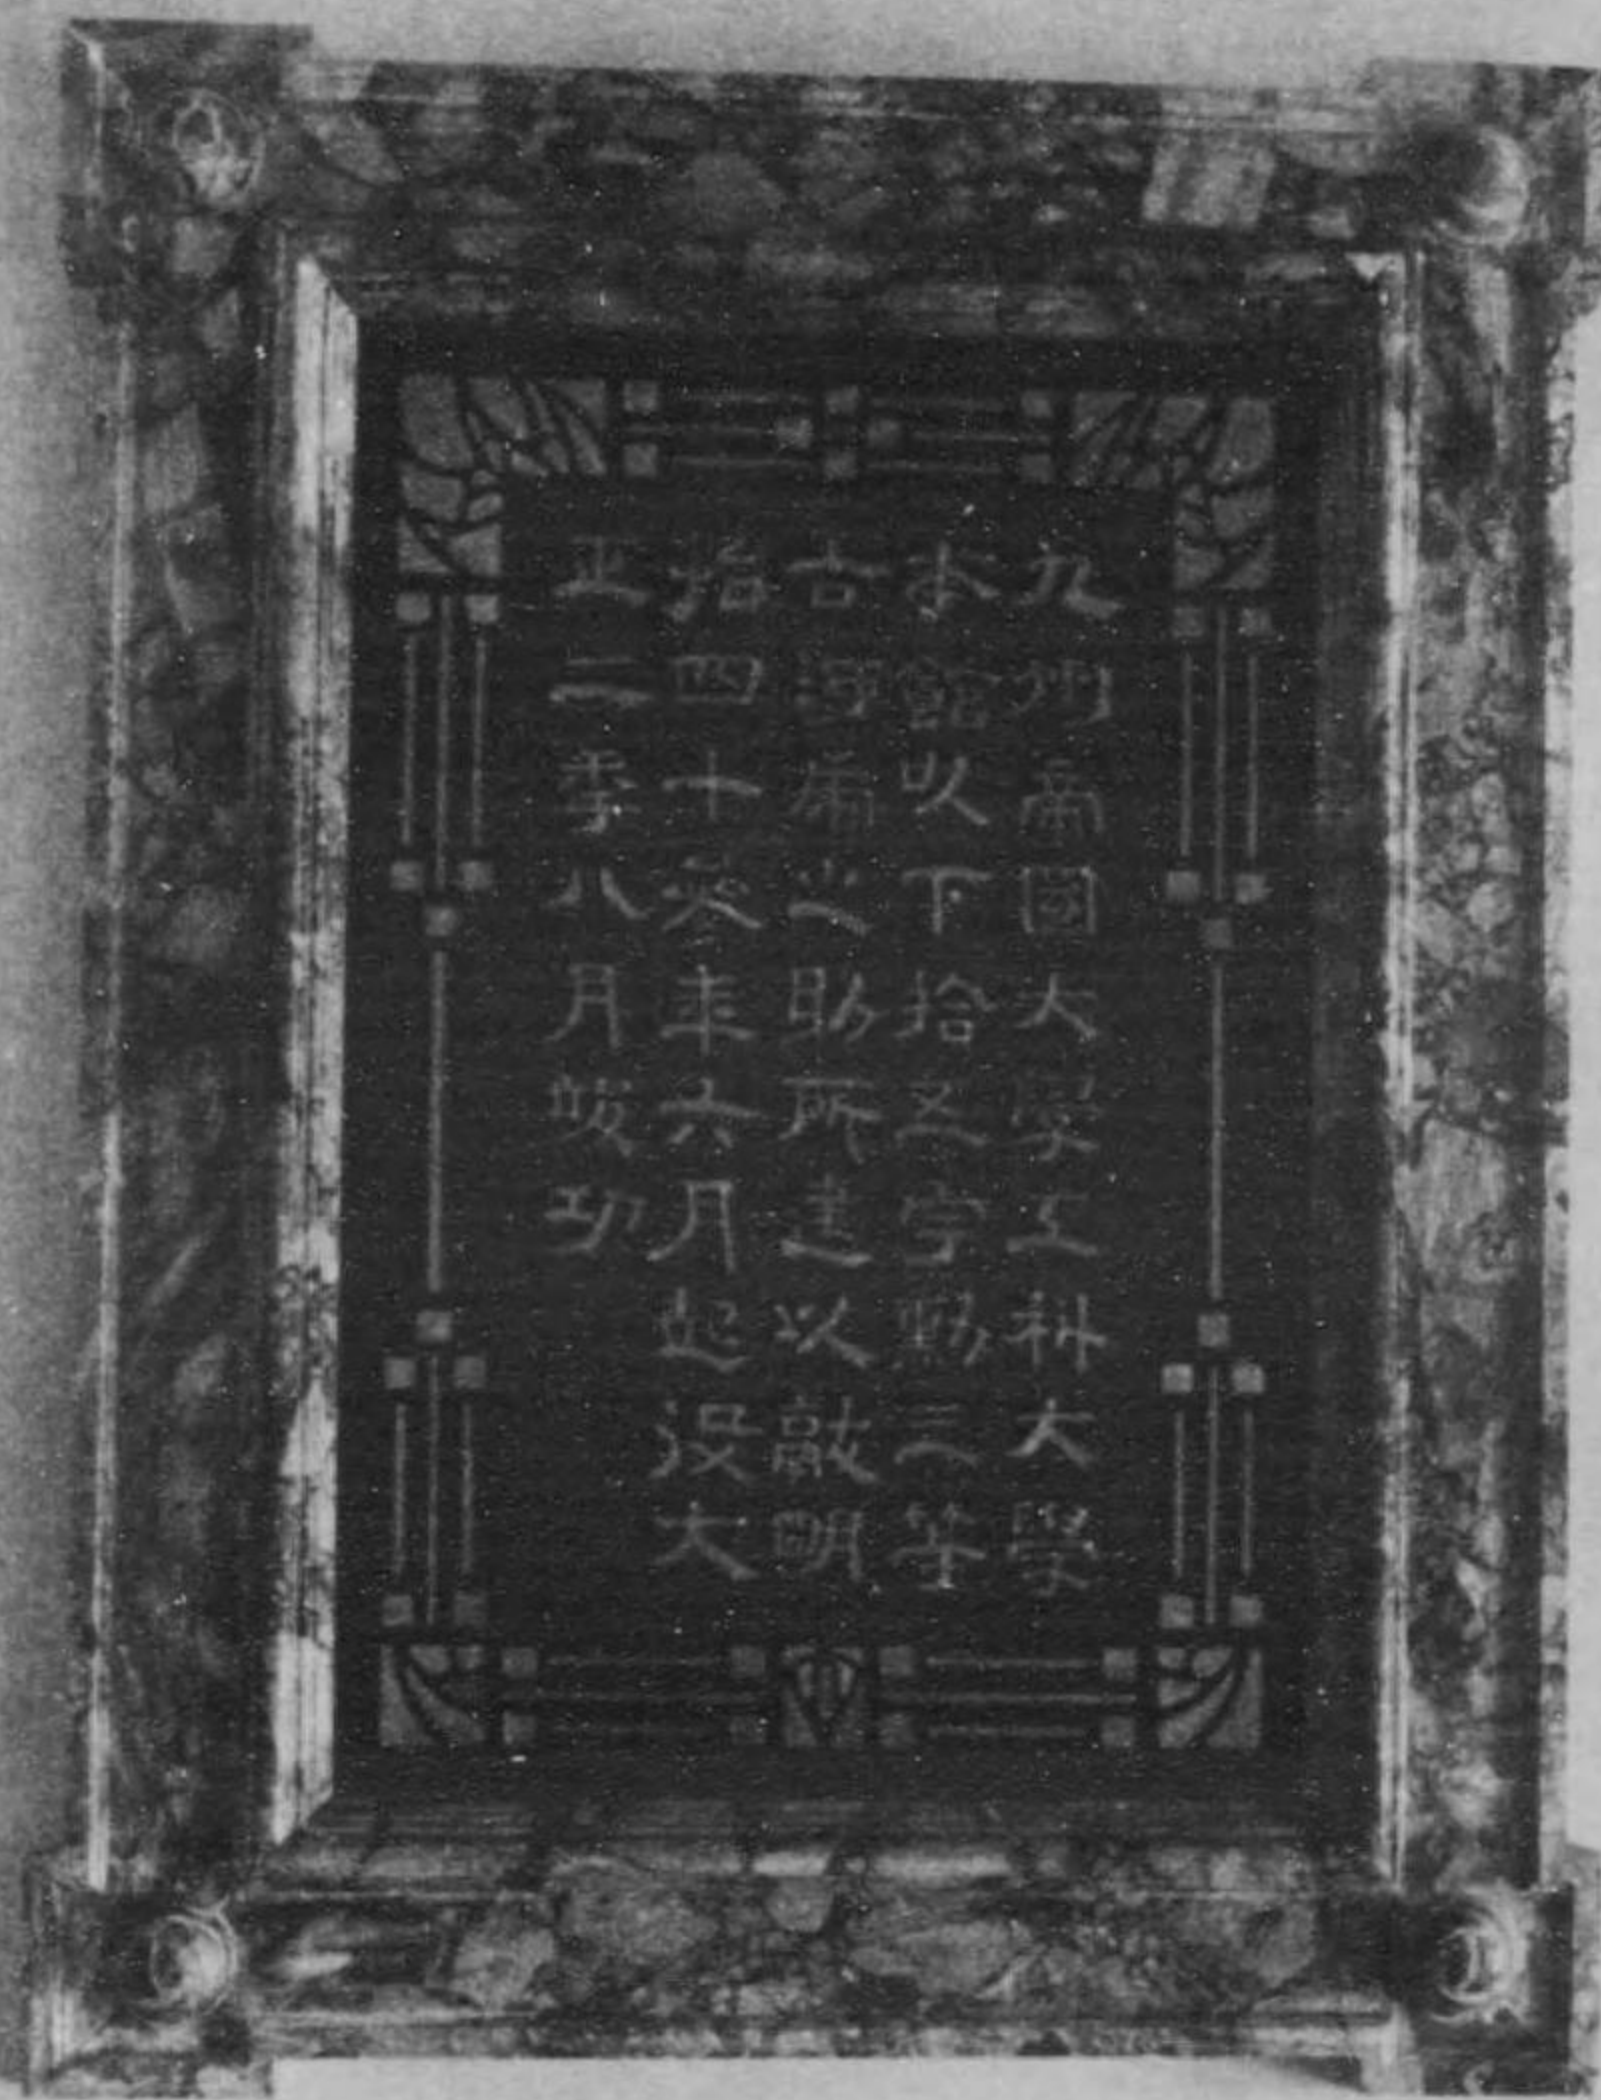 九州帝國大學工科大學
本館以下拾五宇勳三等
古河虎之助所建以明
治四十參年六月起役大
正二秊八月竣功